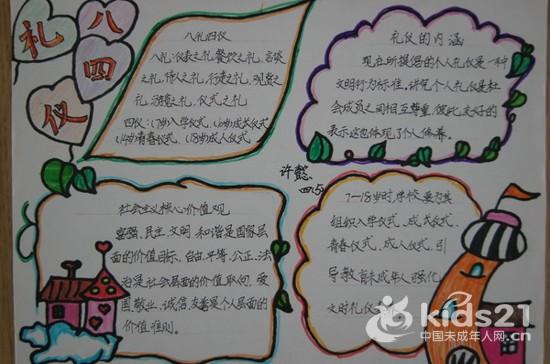 八
礼
四
仪
八礼四仪
八礼:仪表之礼、餐饮之礼、言谈
之礼、待人之礼、行走之礼、观赏之
礼、游览之礼、仪式之礼
四仪:(7岁)入学仪式、(10岁)成长仪式
(14岁)青春仪式、(18岁)成人仪式
礼仪的内涵
现在所提倡的个人礼仪是一种
文明行为标准。讲究个人礼仪是社
会成员之间相互尊重、彼此友好的
表示这也体现了个人修养。
许懿
四、5
社会主义核心价值观
富强、民主、文明、和谐是国家层
面的价值目标,自由、平等、公正、法
治是社会层面的价值取向,爱
国、敬业、诚信、友善是个人层面的
价值准则。
7-18岁时,学校要为其
组织入学仪式、成长仪式、
青春仪式、成人仪式,引
导教育未成年人强化
文明礼仪
kids21
中国未成年人网.cn